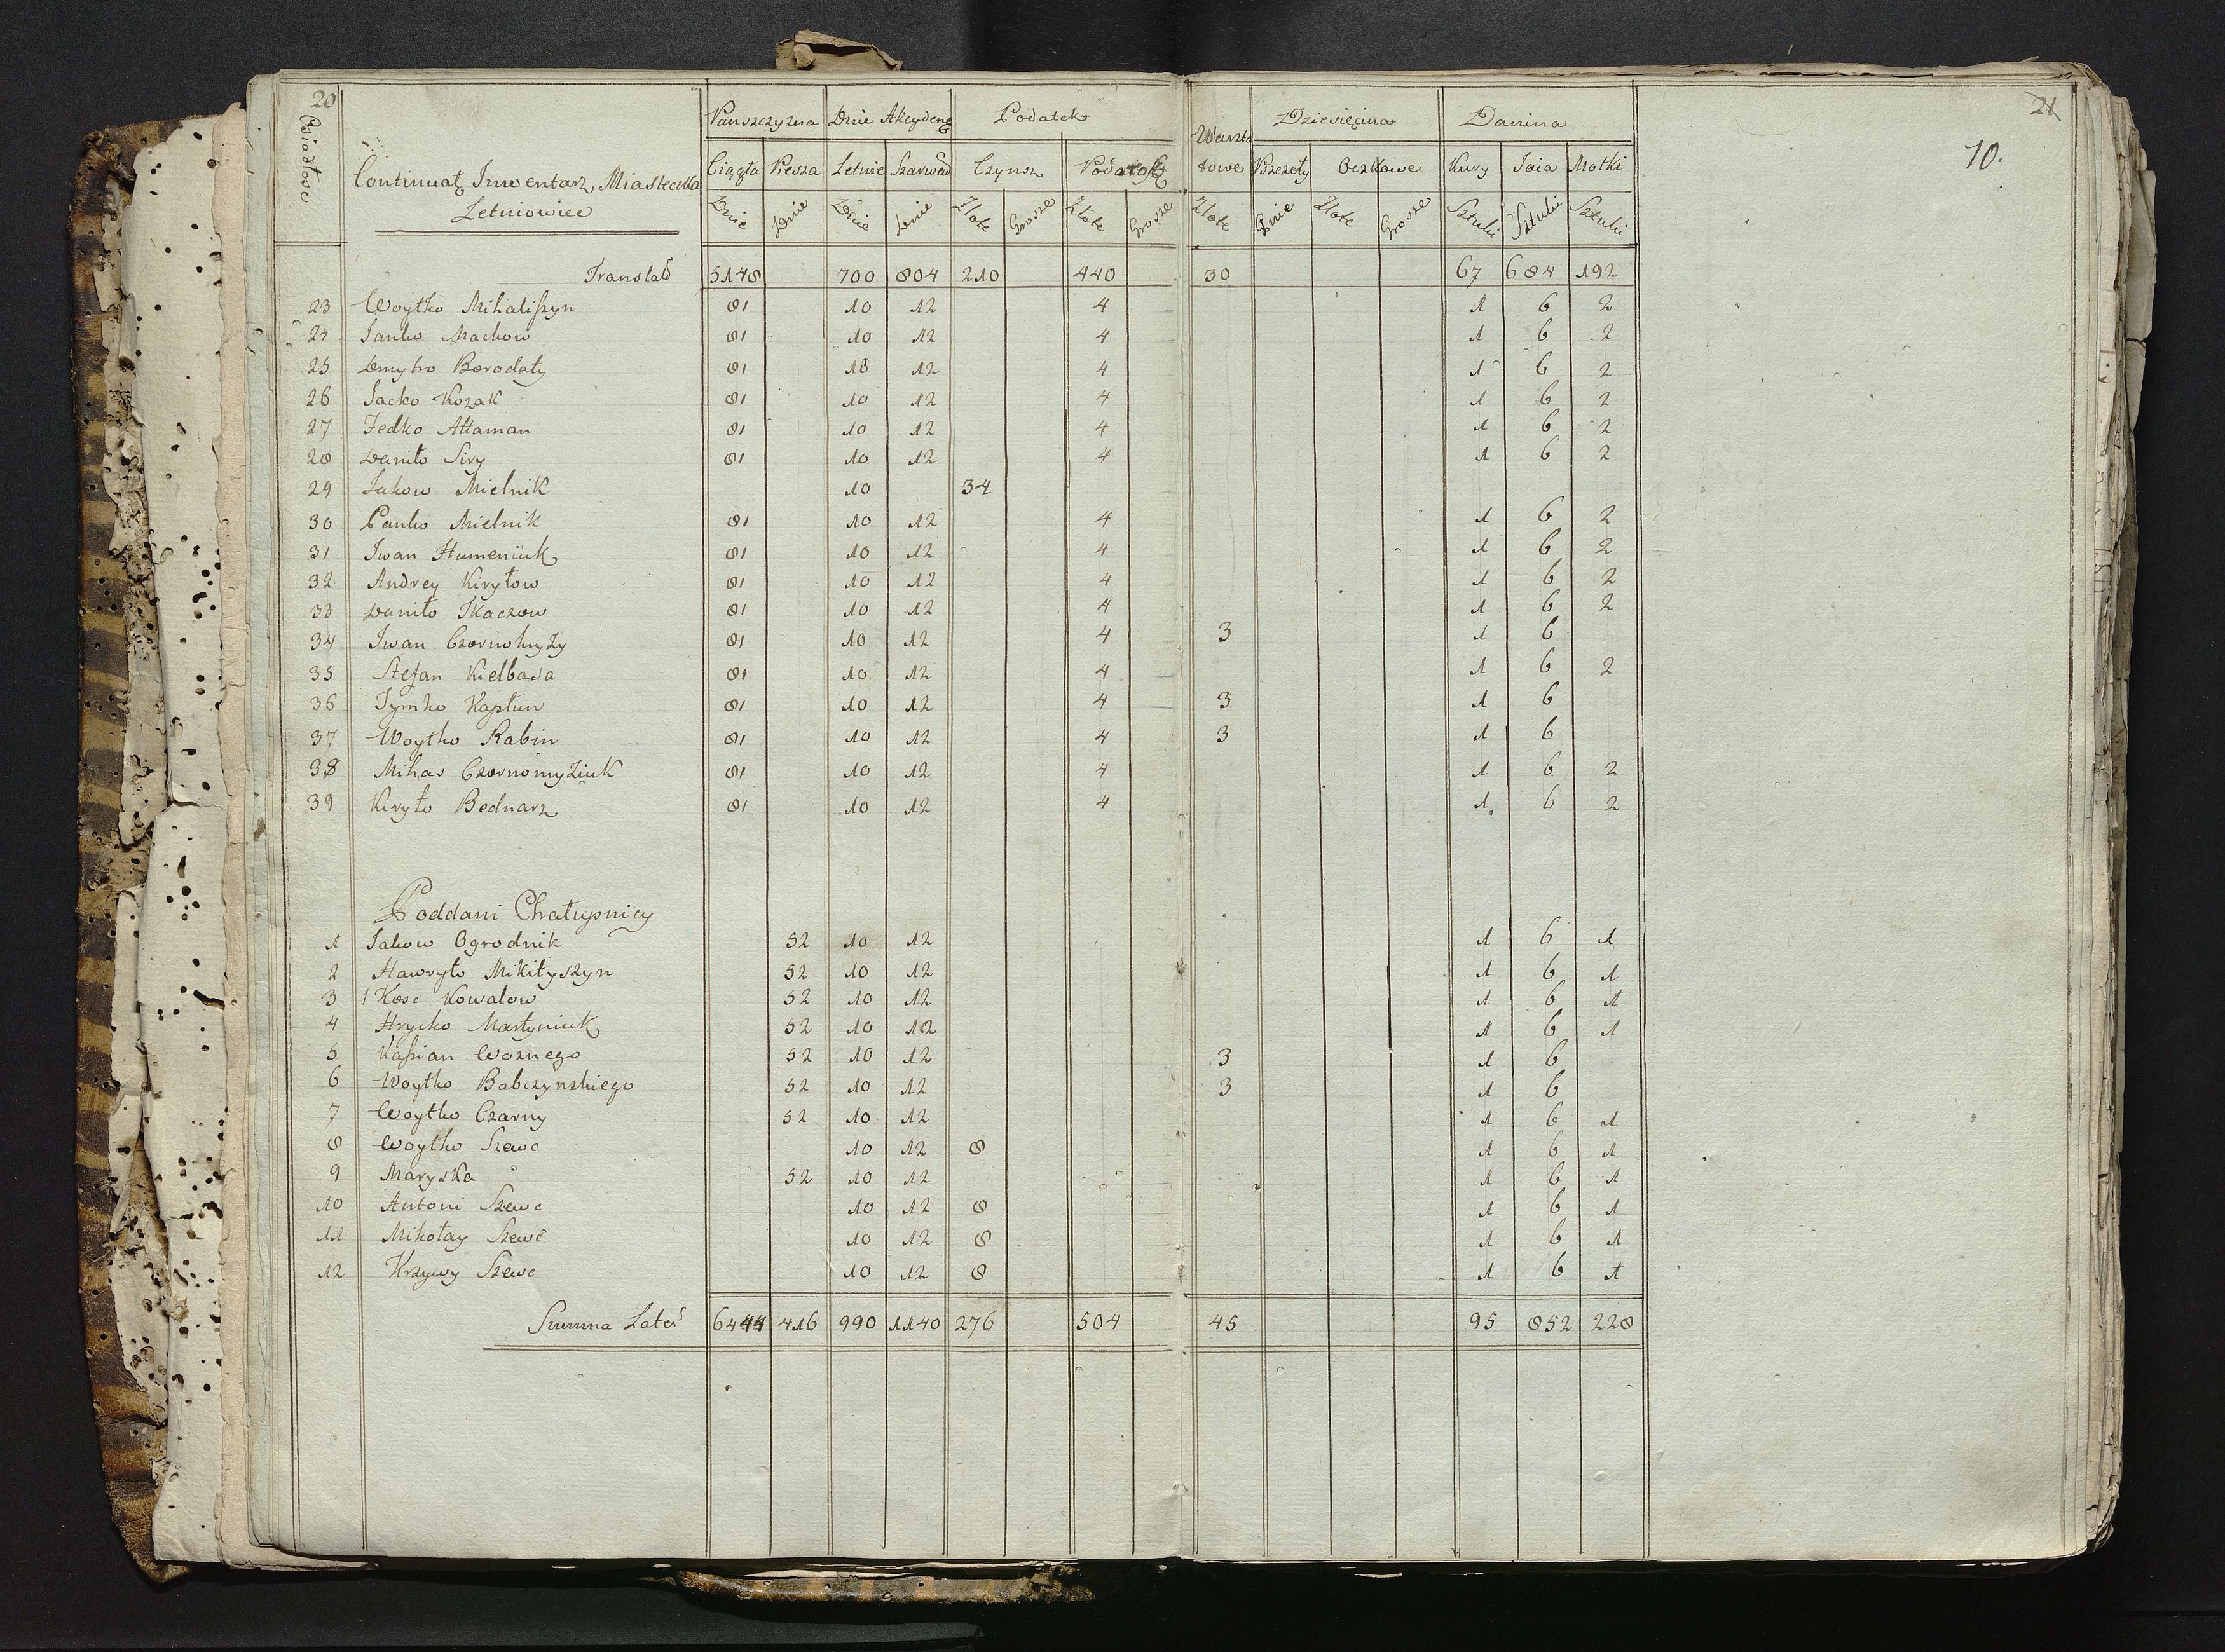 20 21
10.
Osiadłość Continuat Inwentarz Miasteczka Letniowiec
Panszczyzna Dnie Akcydens Podatek Warszta towe Dziesięcina Danina
Ciągła Piesza Letnie Szarwar Czynsz Warszta towe Pszczoły Oczkowe Kury Jaia Motki
Dnie Dnie Dnie Dnie Złote Grosze Złote Grosze Złote Pnie Złote Grosze Sztuki Sztuki Sztuki
Translad 5148 700 804 210 440 30 67 684 192
23 Woytko Mihaliszyn 81 10 12 4 1 6 2
24 Janko Machow 81 10 12 4 1 6 2
25 Dmytro Borodaty 81 10 12 4 1 6 2
26 Jacko Kozak 81 10 12 4 1 6 2
27 Fedko Attaman 81 10 12 4 1 6 2
28 Daniło Siry 81 10 12 4 1 6 2
29 Jakow Mielnik 10 34
30 Panko Mielnik 81 10 12 4 1 6 2
31 Iwan Humeniuk 81 10 12 4 1 6 2
32 Andrey Kiryłow 81 10 12 4 1 6 2
33 Daniło Tkaczow 81 10 12 4 1 6 2
34 Iwan 81 10 12 4 3 1 6
35 Stefan Kielbasa 81 10 12 4 1 6 2
36 Tymko Kapłun 81 10 12 4 3 1 6
37 Woytko Rabin 81 10 12 4 3 1 6
38 Mihas Czornomyziuk 81 10 12 4 1 6 2
39 Kiryło Bednarz 81 10 12 4 1 6 2
Poddani Chałupnicy
1 Jakow Ogrodnik 52 10 12 1 6 1
2 Hawryło Mikityszyn 52 10 12 1 6 1
3 Kosc Kowalow 52 10 12 1 6 1
4 Hrycko Martyniuk 52 10 12 1 6 1
5 Kassian Woznego 52 10 12 3 1 6
6 Woytko Babczynskiego 52 10 12 3 1 6
7 Woytko Czarny 52 10 12 1 6 1
8 Woytko Szewc 10 12 8 1 6 1
9 Maryska 52 10 12 1 6 1
10 Antoni Szewc 10 12 8 1 6 1
11 Mikołay Szewc 10 12 8 1 6 1
12 Krzywy Szewc 10 12 8 1 6 1
Summa Lateris 6444 416 990 1140 276 504 45 95 852 228